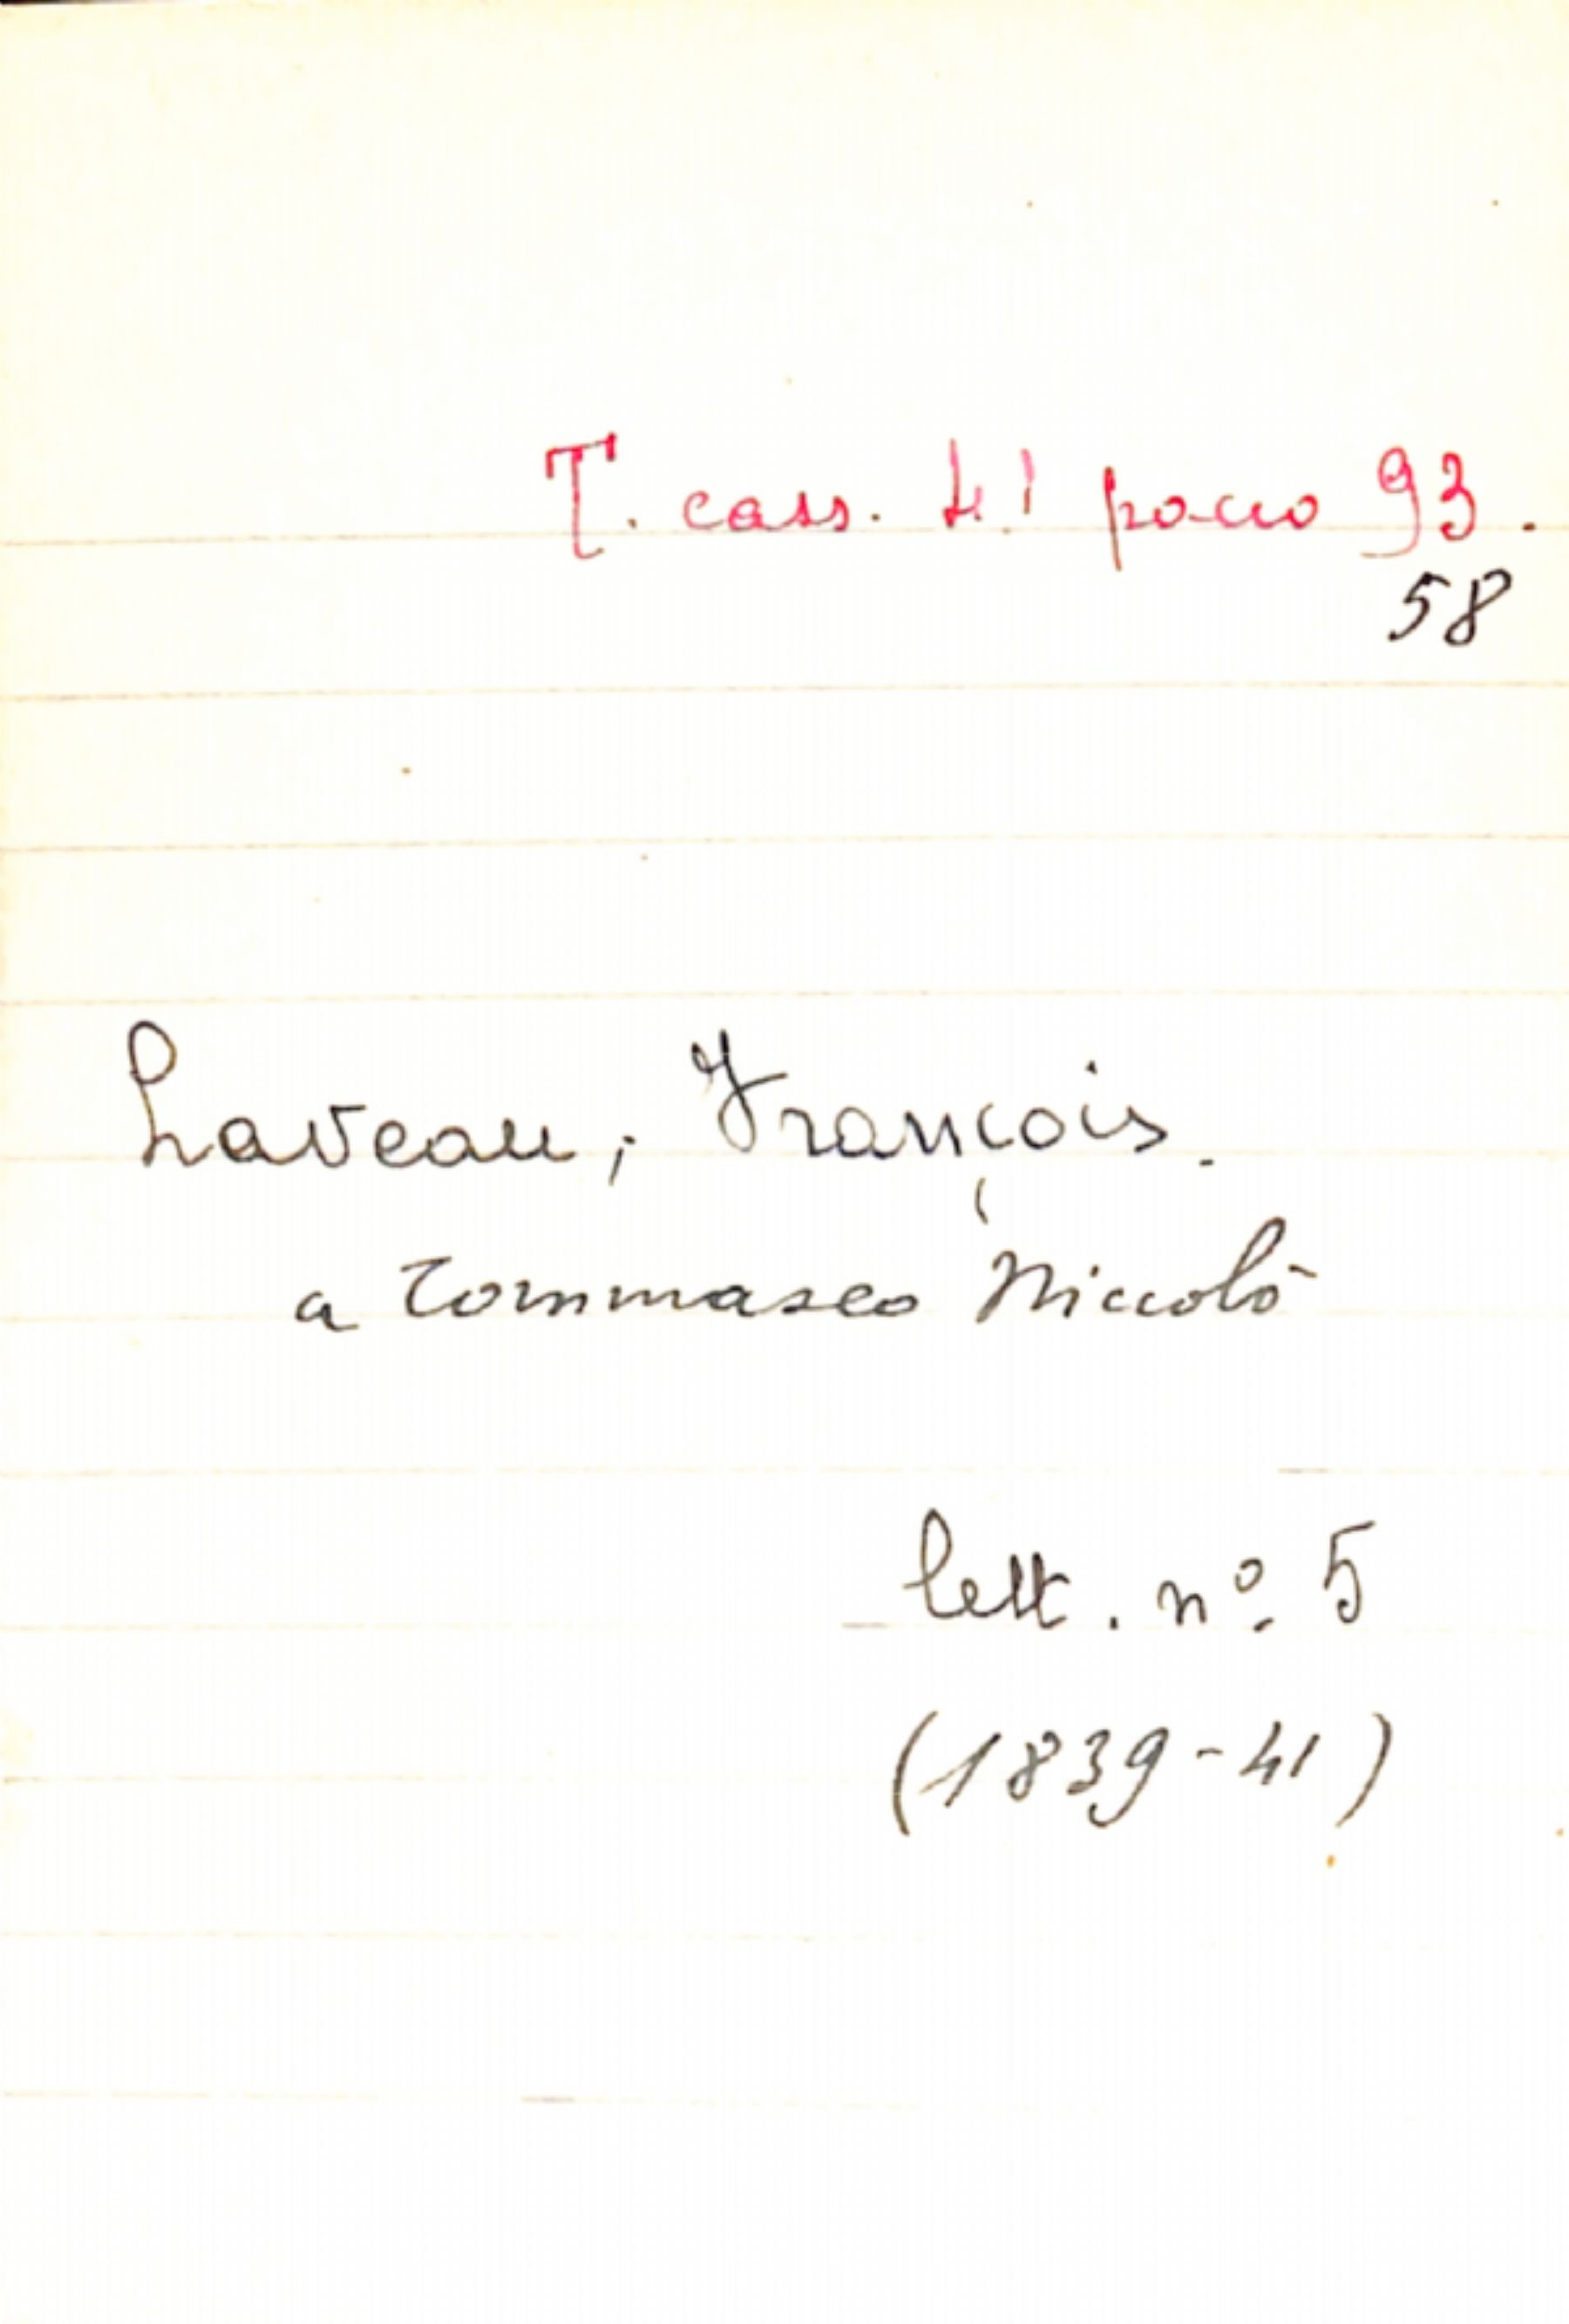 T. cass. 41 pacco 93.
58
Laveau, François.
a Tommaseo Niccolò
lett. nº 5
(1839-41)